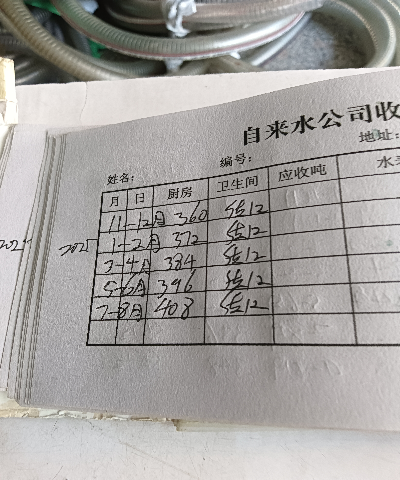 自来水公司收
姓名: 编号: 地址:
月 日 厨房 卫生间 应收吨 水
11-12月 360 估12
2025 1-2月 372 估12
3-4月 384 估12
5-6月 396 估12
7-8月 408 估12